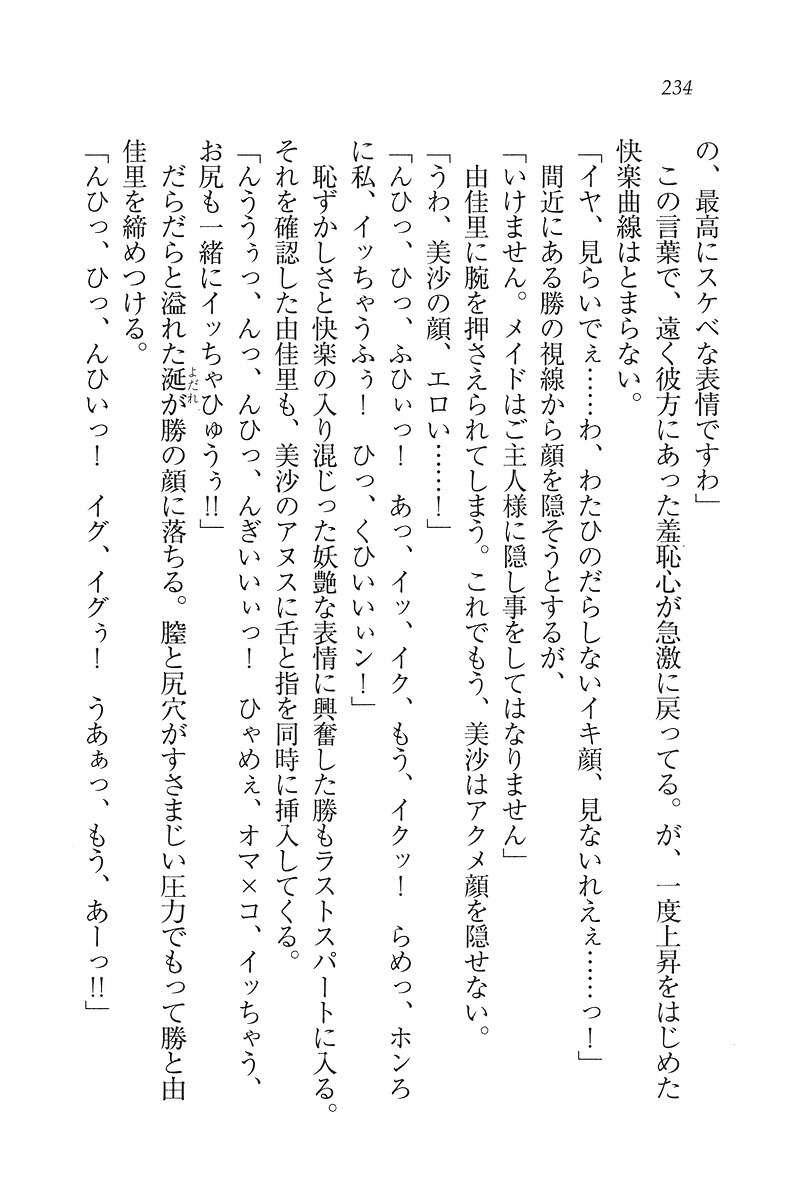 234
の、最高にスケベな表情ですわ」
この言葉で、遠く彼方にあった羞恥心が急激に戻ってる。が、一度上昇をはじめた
快楽曲線はとまらない。
「イヤ、見らいでぇ……わ、わたひのだらしないイキ顔、見ないれえぇ……っ！」
間近にある勝の視線から顔を隠そうとするが、
「いけません。メイドはご主人様に隠し事をしてはなりません」
由佳里に腕を押さえられてしまう。これでもう、美沙はアクメ顔を隠せない。
「うわ、美沙の顔、エロい……！」
「んひっ、ひっ、ふひぃっ！　あっ、イッ、イク、もう、イクッ！　らめっ、ホンろ
に私、イッちゃうふぅ！　ひっ、くひいいぃン！」
恥ずかしさと快楽の入り混じった妖艶な表情に興奮した勝もラストスパートに入る。
それを確認した由佳里も、美沙のアヌスに舌と指を同時に挿入してくる。
「んううぅっ、んっ、んひっ、んぎいいぃっ！　ひゃめぇ、オマ×コ、イッちゃう、
お尻も一緒にイッちゃひゅうぅ!!」
だらだらと溢れた涎よだれが勝の顔に落ちる。膣と尻穴がすさまじい圧力でもって勝と由
佳里を締めつける。
「んひっ、ひっ、んひいっ！　イグ、イグぅ！　うあぁっ、もう、あーっ!!」